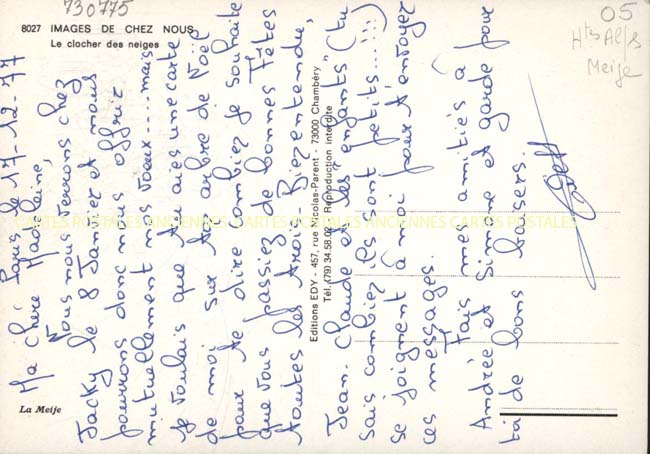 730775
8027 IMAGES DE CHEZ NOUS
Le clocher des neiges
05
Htes Alps
Meije
Paris le 17-12-77
Ma chère Madeleine,
Nous nous verrons chez
Jacky le 8 Janvier et nous
pourrons donc nous offrir
mutuellement nos voeux.... mais
je voulais que tu aies une carte
de moi sur ton arbre de Noël
pour te dire combien je souhaite
que vous passiez de bonnes Fêtes
toutes les trois. Bien entendu,
Jean-Claude et les enfants (tu
sais combien ils sont petits.....)
se joignent à moi pour t'envoyer
ces messages.
Fais mes amitiés à
Andrée et Simone et garde pour
toi de bons baisers.
Editions EDY - 457, rue Nicolas-Parent - 73000 Chambéry
Tél. (79) 34.58.02 - Reproduction interdite
La Meije
CARTES POSTALES ANCIENNES CARTES POSTALES ANCIENNES CARTES POSTALES